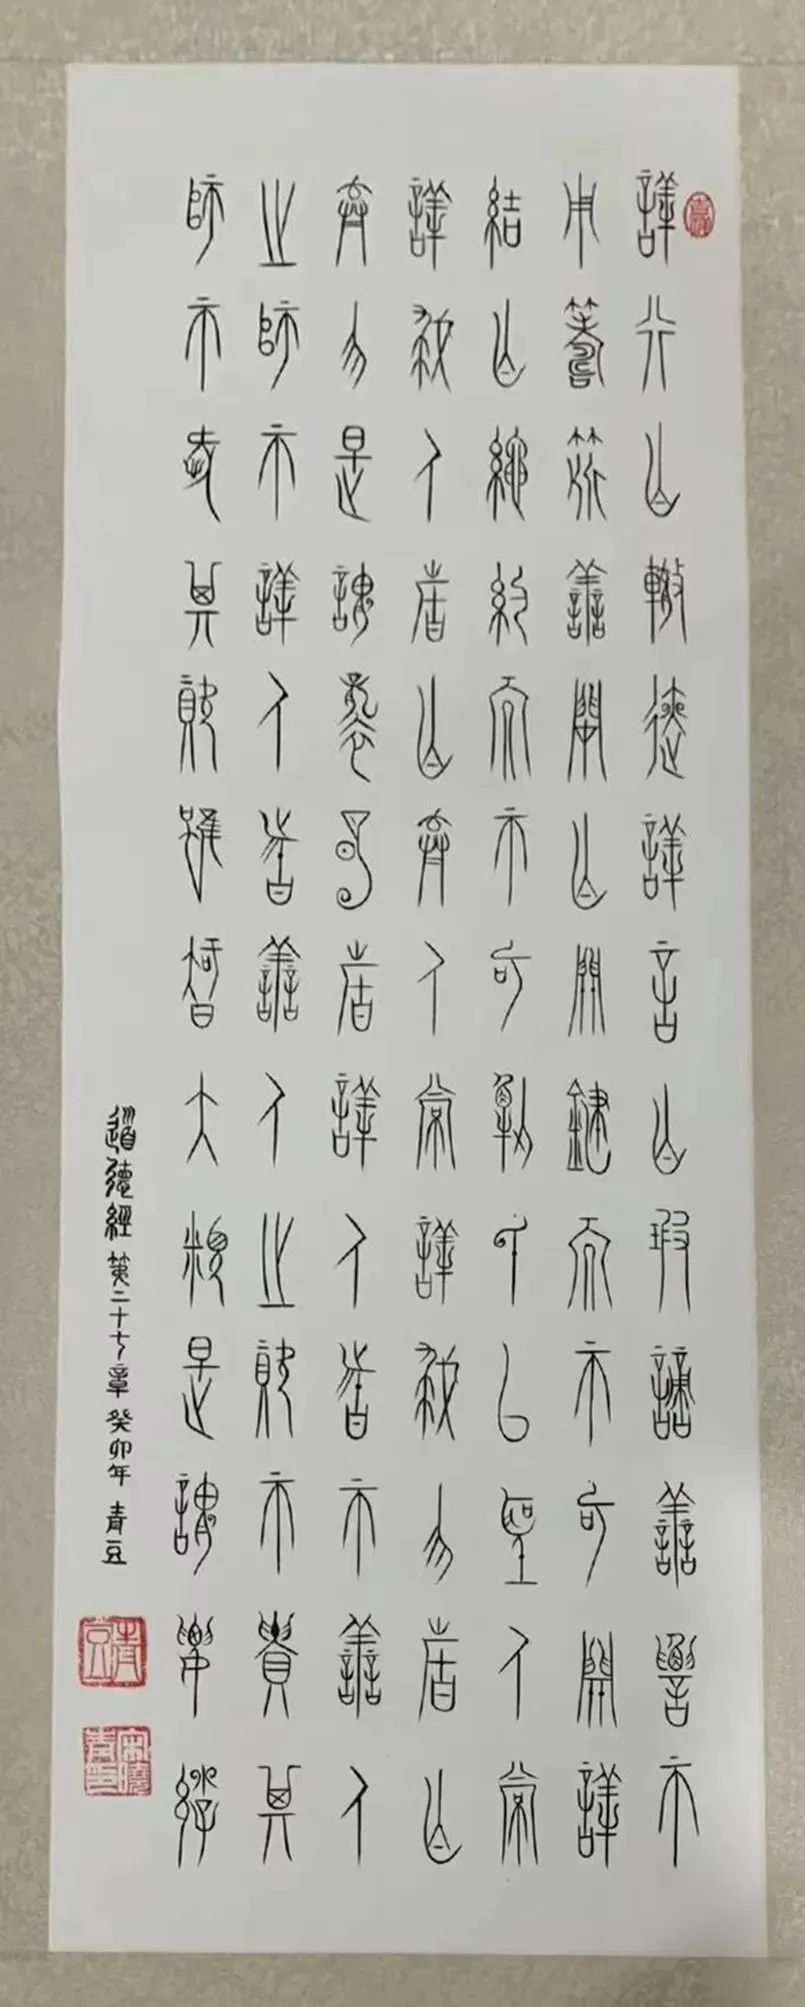 善行無轍迹善言無瑕謫善數不
用籌策善閉無關鍵而不可開善
結無繩約而不可解是以聖人常
善救人故無棄人常善救物故無
棄物是謂襲明故善人者不善人
之師不善人者善人之資不貴其
師不愛其資雖智大迷是謂要妙
道德經第二十七章癸卯年青豆
青豆